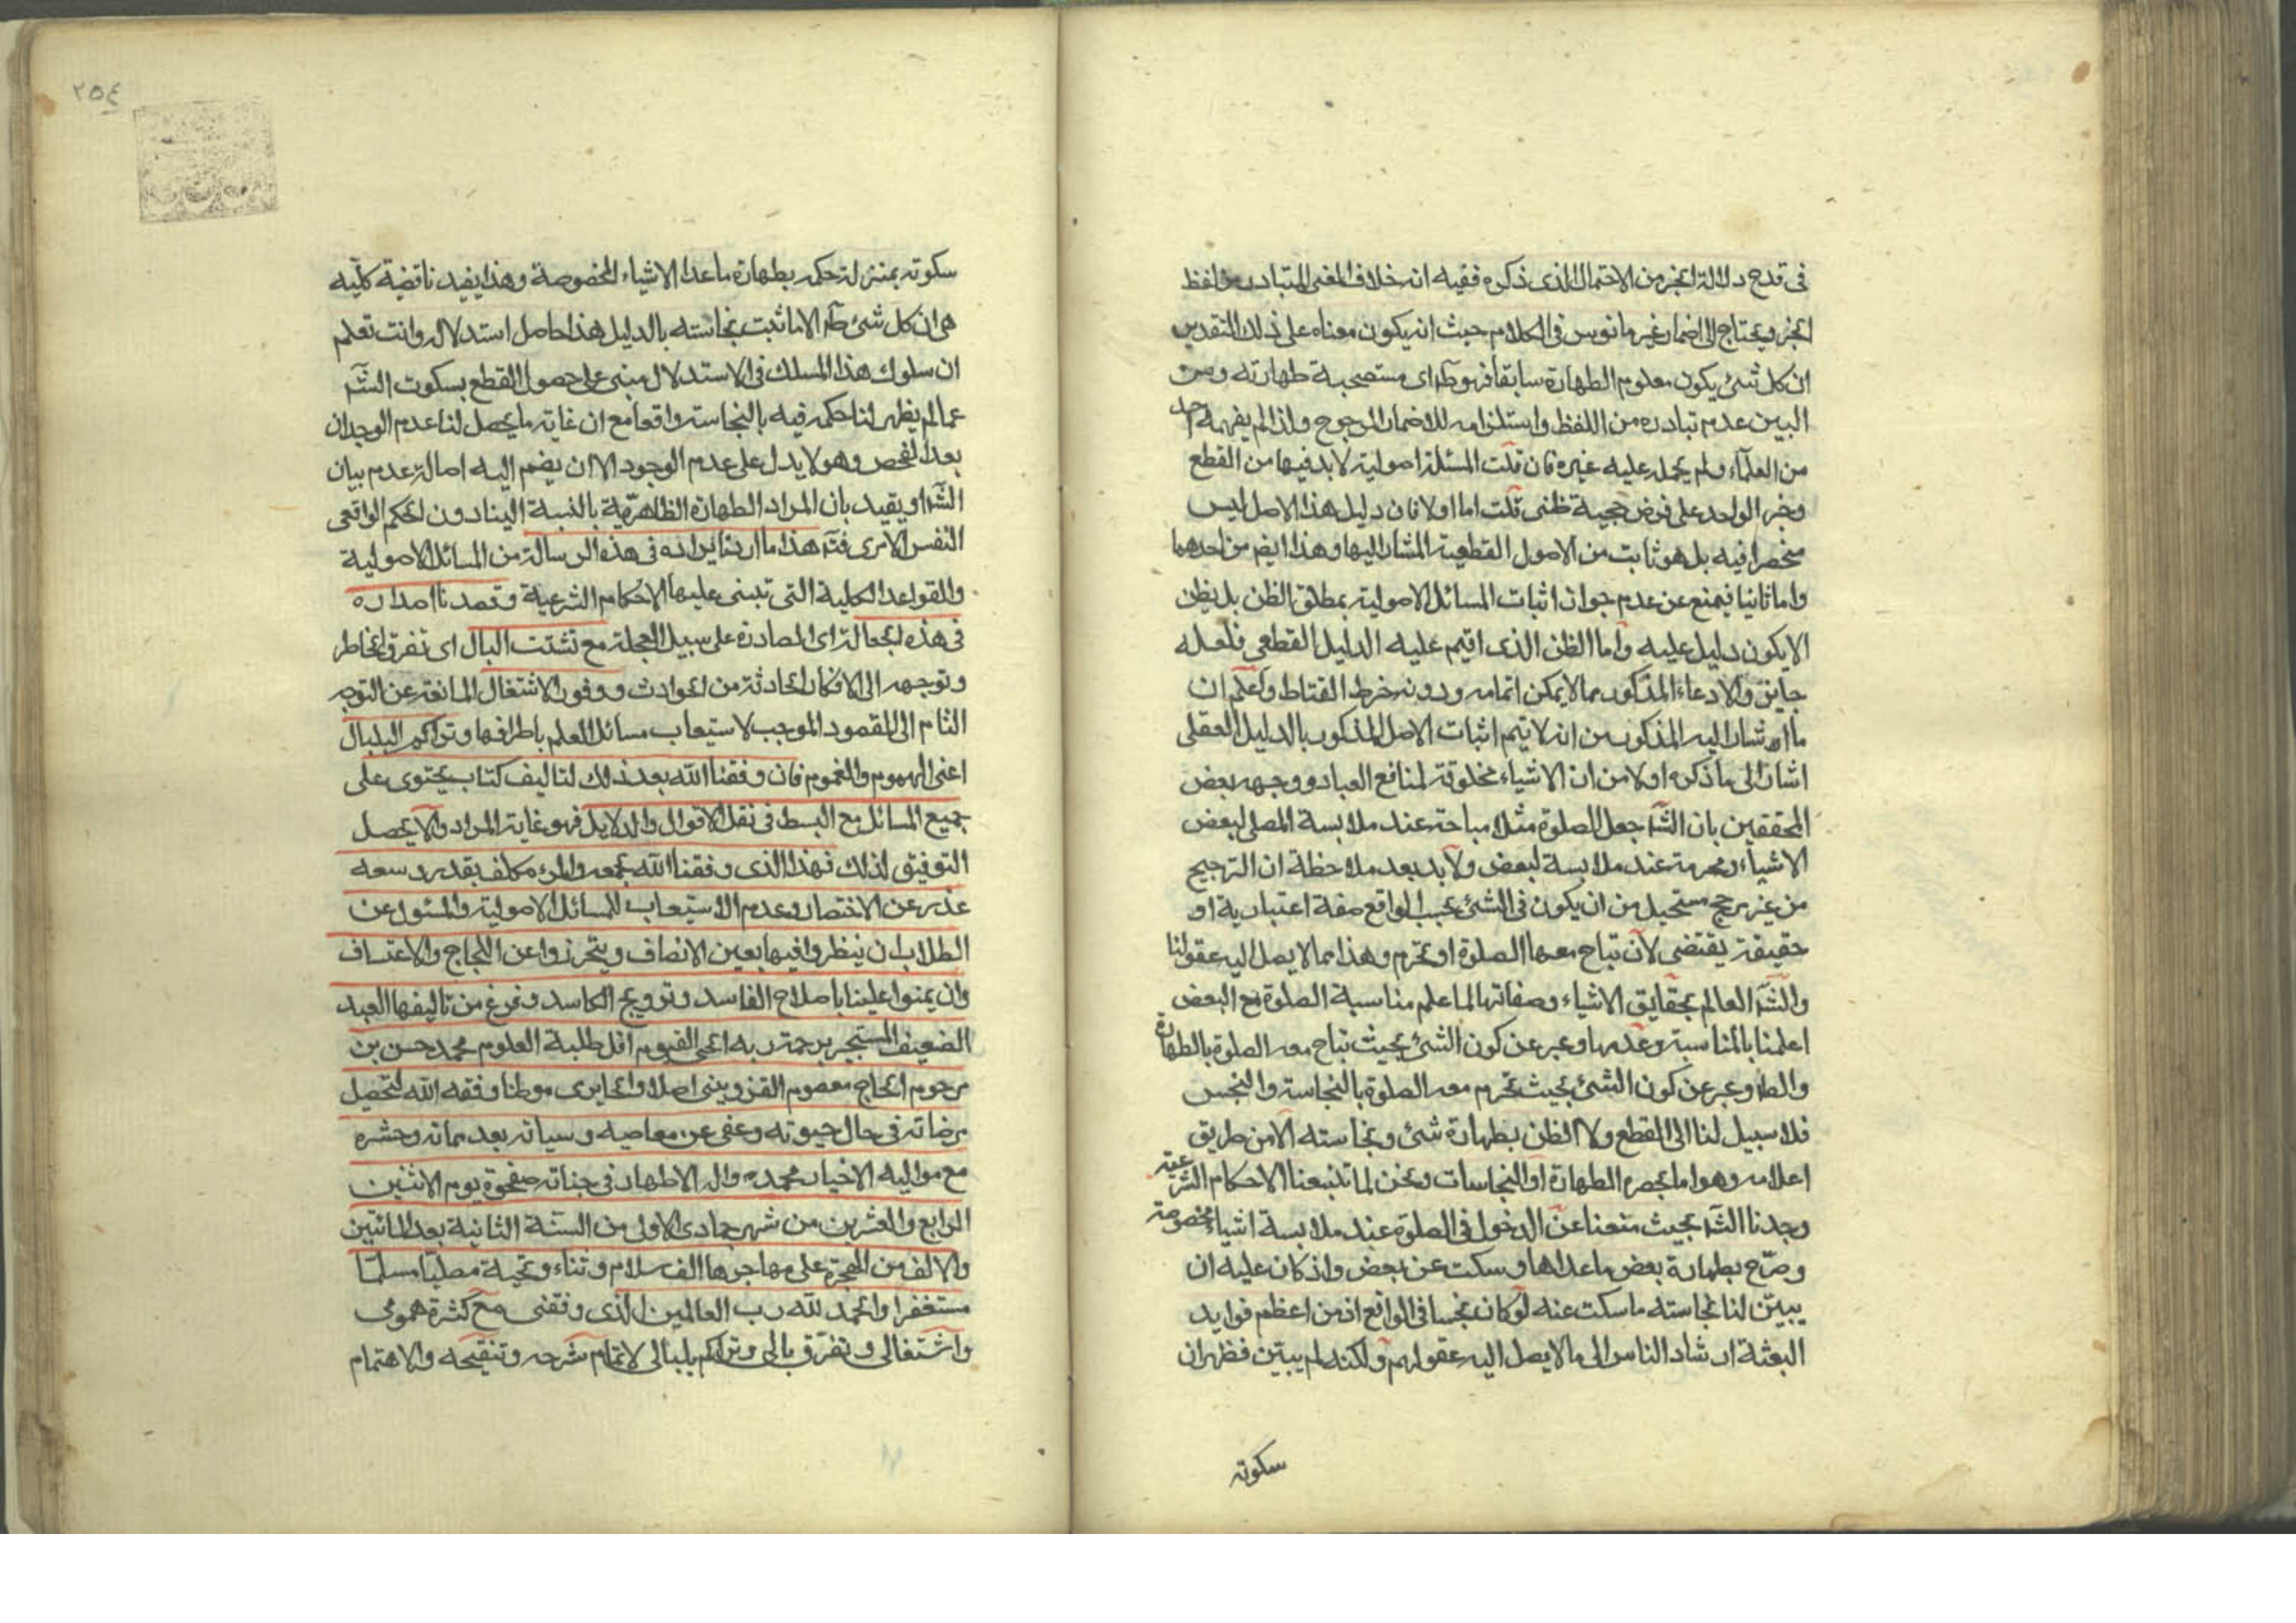 فى قدح دلالة الخبر من الاحتمال الذى ذكره ففيه انه خلاف المعنى المتبادر من لفظ
الخبر ويحتاج الى اضمار غير مانوس فى الكلام حيث انه يكون معناه على ذلك التقدير
ان كل شئ يكون معلوم الطهارة سابقا فهو طاهر اى مستصحبة طهارته ومن
البين عدم تبادره من اللفظ واستلزامه للاضمار المرجوح ولذا لم يفهمه احد
من العلمآء ولم يحمله عليه غيره فان قلت المسئلة اصولية لابد فيها من القطع
وخبر الواحد على فرض حجية ظنى قلت اما اولا فان دليل هذا الاصل ليس
منحصرا فيه بل هو ثابت من الاصول القطعية المشار اليها وهذا ايضم من احدهما
واما ثانيا فيمنع عن عدم جواز اثبات المسائل الاصولية بمطلق الظن بل بظن
لا يكون دليل عليه واما الظن الذى اقيم عليه الدليل القطعى فلعله
جايز والادعاء المذكور مما لا يمكن اتمامه ودونه خرط القتاط واعلم ان
ما اشار اليه المذكور من انه لا يتم اثبات الاصل المذكور بالدليل العقلى
اشار الى ما ذكره اولا من ان الاشياء مخلوقة لمنافع العباد ووجهه بعض
المحققين بان الشآ جعل الصلوة مثلا مباحة عند ملابسة المصلى لبعض
الاشياء ومحرمة عند ملابسة لبعض ولا بد بعد ملاحظة ان الترجيح
من غير مرجح مستحيل من ان يكون فى الشئ بحسب الواقع صفة اعتبارية او
حقيقة يقتضى لان تباح معها الصلوة او تحرم وهذا مما لا يصل اليه عقولنا
والشآ العالم بحقايق الاشياء وصفاتها لما علم مناسبة الصلوة مع البعض
اعلمنا بالمناسبة وعدمها وعبر عن كون الشئ بحيث تباح معه الصلوة بالطهارة
والطآ وعبر عن كون الشئ بحيث تحرم معه الصلوة بالنجاسة والنجس
فلا سبيل لنا الى القطع ولا الظن بطهارة شئ ونجاسته الا من طريق
اعلامه وهو اما بحصره الطهارة او النجاسات ونحن لما تتبعنا الاحكام الشرعية
وجدنا الشآ بحيث منعنا عن الدخول فى الصلوة عند ملابسة اشياء مخصوصة
وصرّح بطهارة بعض ماعداها وسكت عن بعض واذ كان عليه ان
يبيّن لنا نجاسته ما سكت عنه لو كان نجسا فى الواقع اذ من اعظم فوايد
البعثة ارشاد الناس الى ما لا يصل اليه عقولهم ولكنه لم يبيّن فظهر ان
سكوته
٢٥٤
سكوته بمنزلة حكمه بطهارة ماعدا الاشياء المخصوصة وهذا يفيد ناقضية كلّيه
هى ان كل شئ طآ الا ما ثبت نجاسته بالدليل هذا حاصل استدلاله وانت تعلم
ان سلوك هذا المسلك فى الاستدلال مبنى على حصول القطع بسكوت الشآ
عما لم يظهر لنا حكمه فيه بالنجاسة واقعا مع ان غاية ما يحصل لنا عدم الوجدان
بعد الفحص وهو لا يدل على عدم الوجود الا ان يضم اليه اصالة عدم بيان
الشآ او يقيد بان المراد الطهارة الظاهرية بالنسبة الينا دون الحكم الواقعى
النفس الامرى فتد هذا ما اردنا ايراده فى هذه الرسالة من المسائل الاصولية
والقواعد الكلية التى تبتنى عليها الاحكام الشرعية وقصدنا اصداره
فى هذه العجالة اى المصادرة على سبيل العجلة مع تشتت البال اى تفرق الخاطر
وتوجهه الى الافكار الحادثة من الحوادث ووفور الاشتغال المانعة عن التوجه
التام الى المقصود الموجب لاستيعاب مسائل العلم باطرافها وتراكم البلبال
اعنى الهموم والغموم فان وفقنا الله بعد ذلك لتاليف كتاب يحتوى على
جميع المسائل مع البسط فى نقل الاقوال والدلايل فهو غاية المراد والا يحصل
التوفيق لذلك فهذا الذى وفقنا الله بجمعه والمرء مكلف بقدر وسعه
عذر عن الاختصار وعدم الاستيعاب للمسائل الاصولية والمسئول عن
الطلاب ان ينظروا فيها بعين الانصاف ويتحرزوا عن اللجاج والاعتساف
وان يمنوا علينا باصلاح الفاسد وترويج الكاسد وفرغ من تاليفها العبد
الضعيف المستجير برحمة ربه الحى القيوم اقل طلبة العلوم محمد حسن بن
مرحوم الحاج معصوم القزوينى اصلا والحايرى موطنا وفقه الله لتحصيل
مرضاته فى حال حيوته وعفى عن معاصيه وسيئاته بعد مماته وحشره
مع مواليه الاخيار محمد واله الاطهار فى جناته صفحوة يوم الاثنين
الرابع والعشرين من شهر جمادى الاولى من السنة الثانية بعد المائتين
والالف من الهجرة على مهاجرها الف سلام وثناء وتحية مصليّا مسلمّا
مستغفرا والحمد لله رب العالمين الذى وفقنى مع كثرة همومى
واشتغالى وتفرّق بالى وتراكم بلبالى لاتمام شرحه وتنقيحه والاهتمام